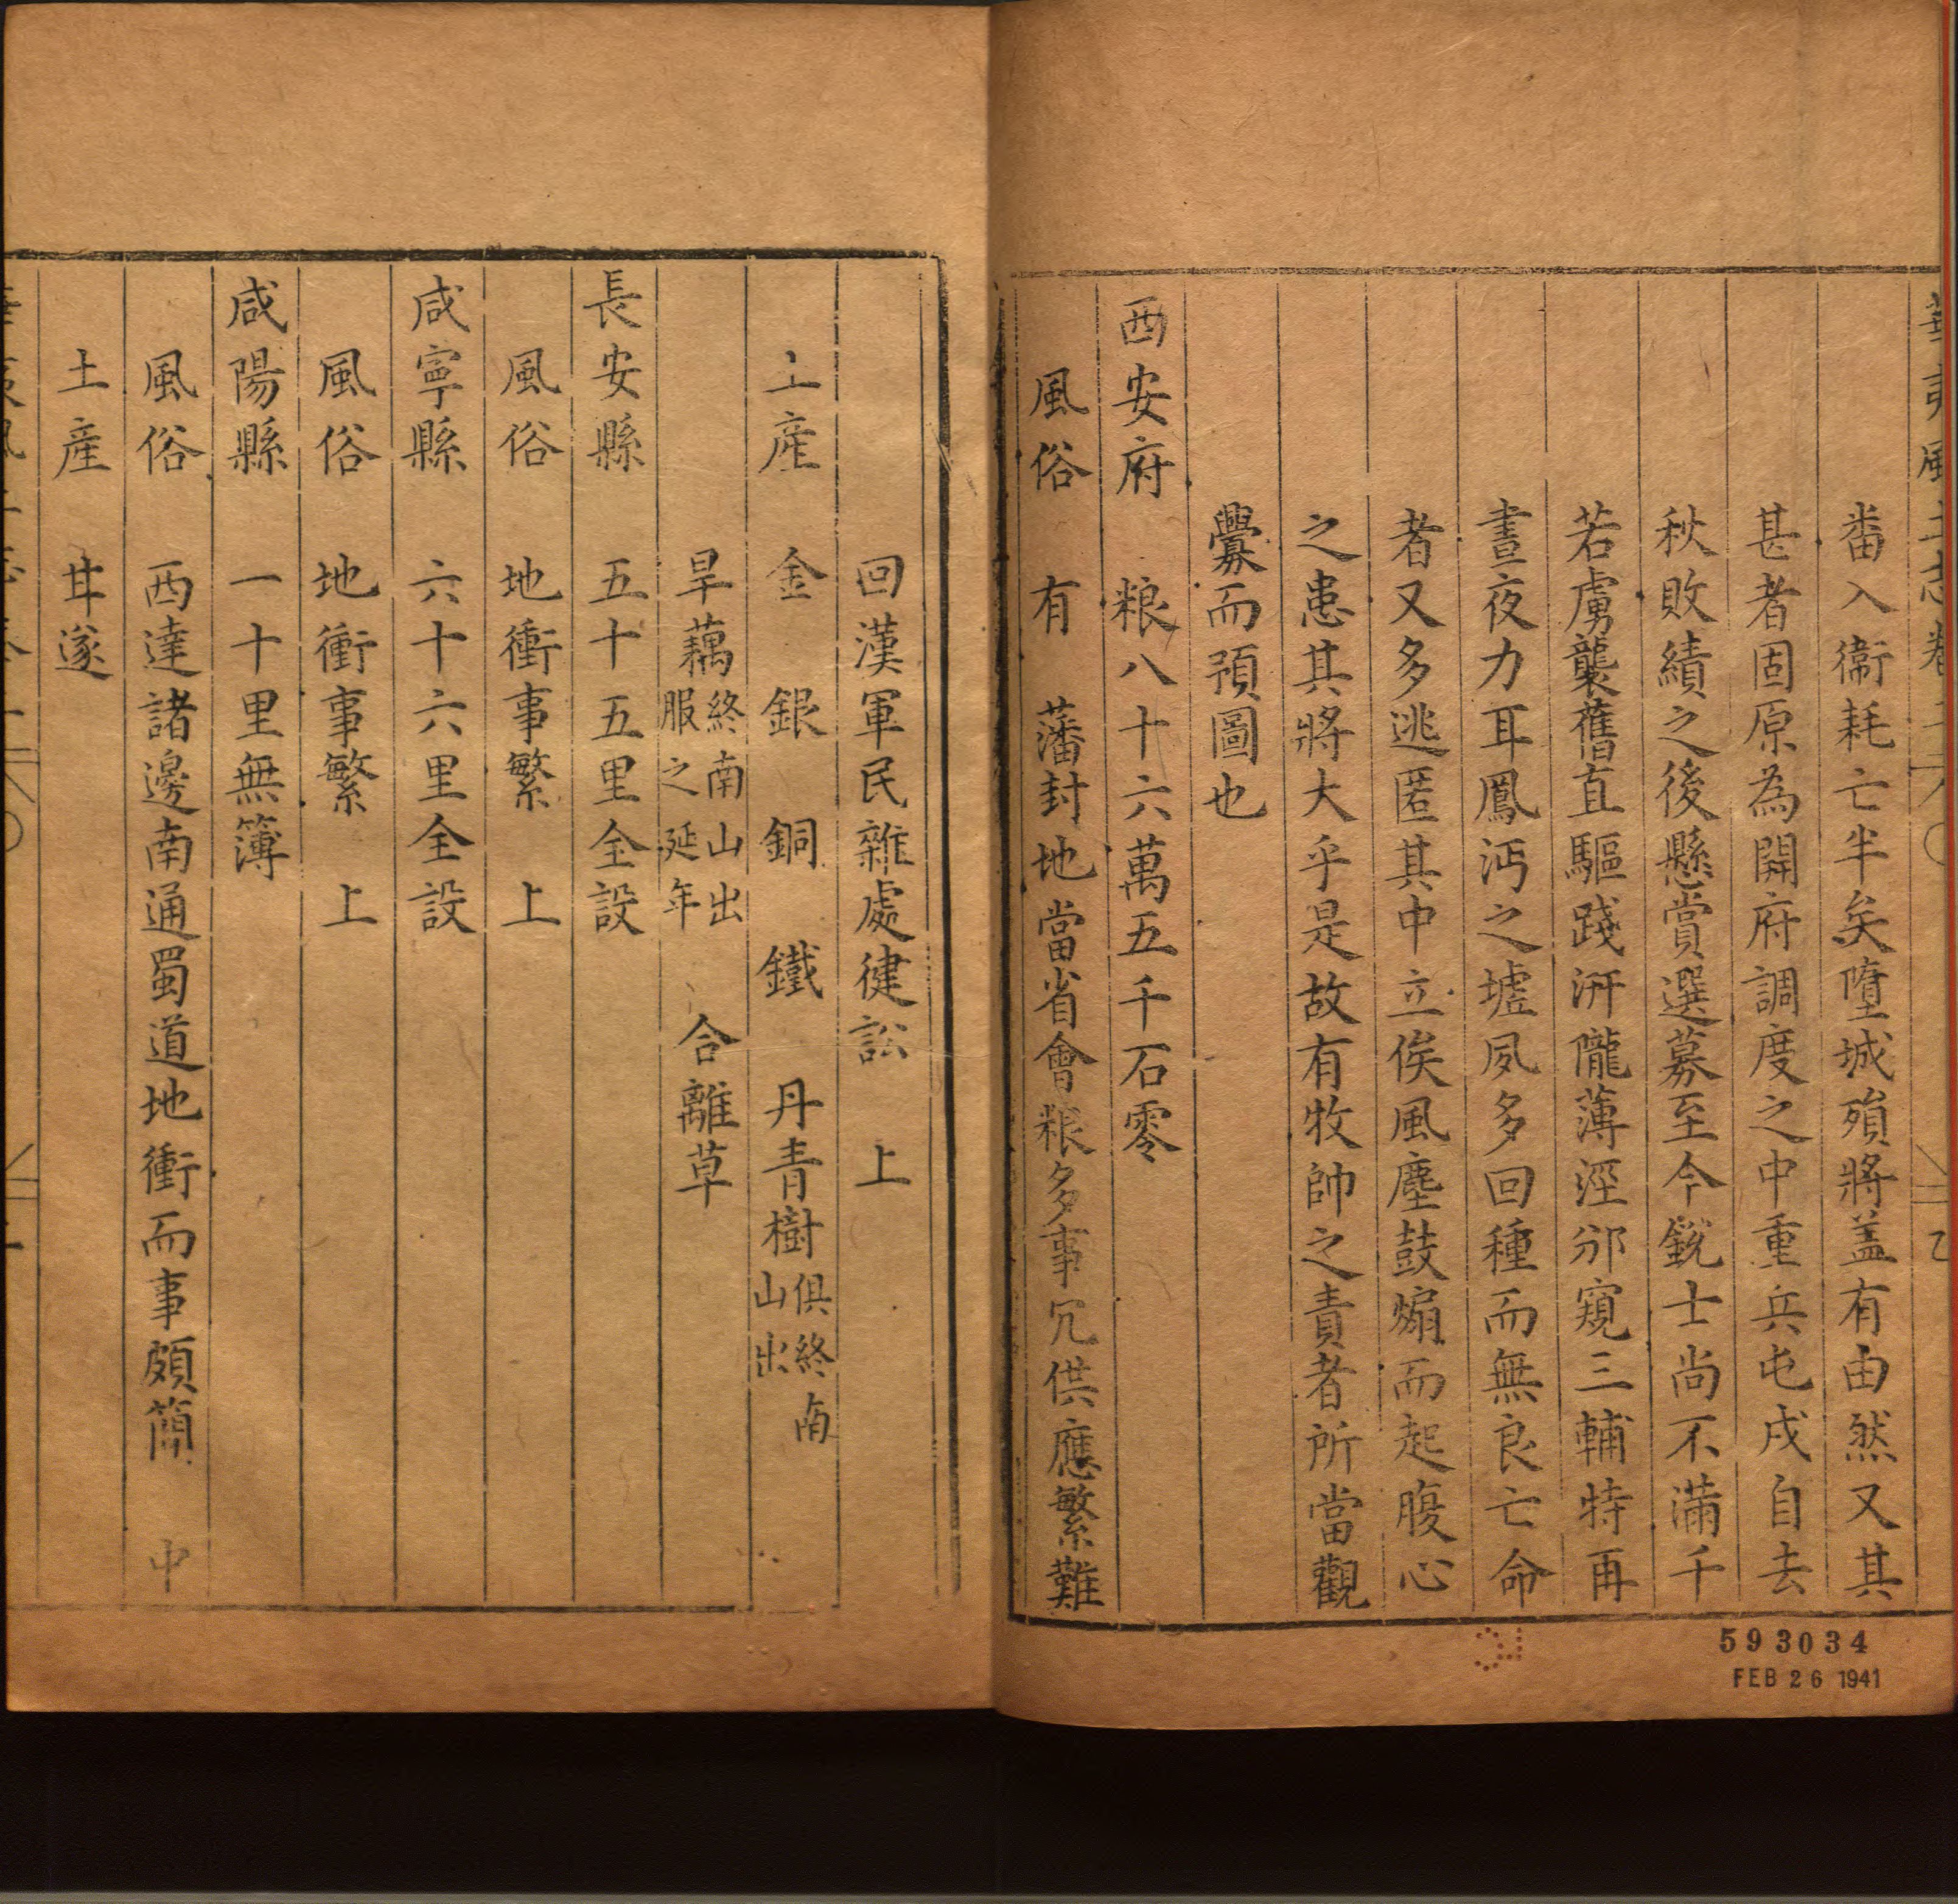 華夷風土志卷二
番入衛耗亡半矣墮城殞將盖有由然又其
甚者固原為開府調度之中重兵屯戍自去
秋敗績之後懸賞選募至今銳士尚不滿千
若虜襲舊直驅踐汧隴薄涇邠窺三輔特再
晝夜力耳鳳沔之墟夙多回種而無良亡命
者又多逃匿其中立俟風塵鼓煽而起腹心
之患其將大乎是故有牧帥之責者所當觀
釁而預圖也
西安府 粮八十六萬五千石零
風俗 有 藩封地當省會粮多事冗供應繁難
593034
FEB 26 1941
回漢軍民雜處健訟 上
土產 金 銀 銅 鐵 丹青樹俱終南山出
旱藕終南山出服之延年 合離草
長安縣 五十五里全設
風俗 地衝事繁 上
咸寧縣 六十六里全設
風俗 地衝事繁 上
咸陽縣 一十里無簿
風俗 西達諸邊南通蜀道地衝而事頗簡 中
土產 甘遂